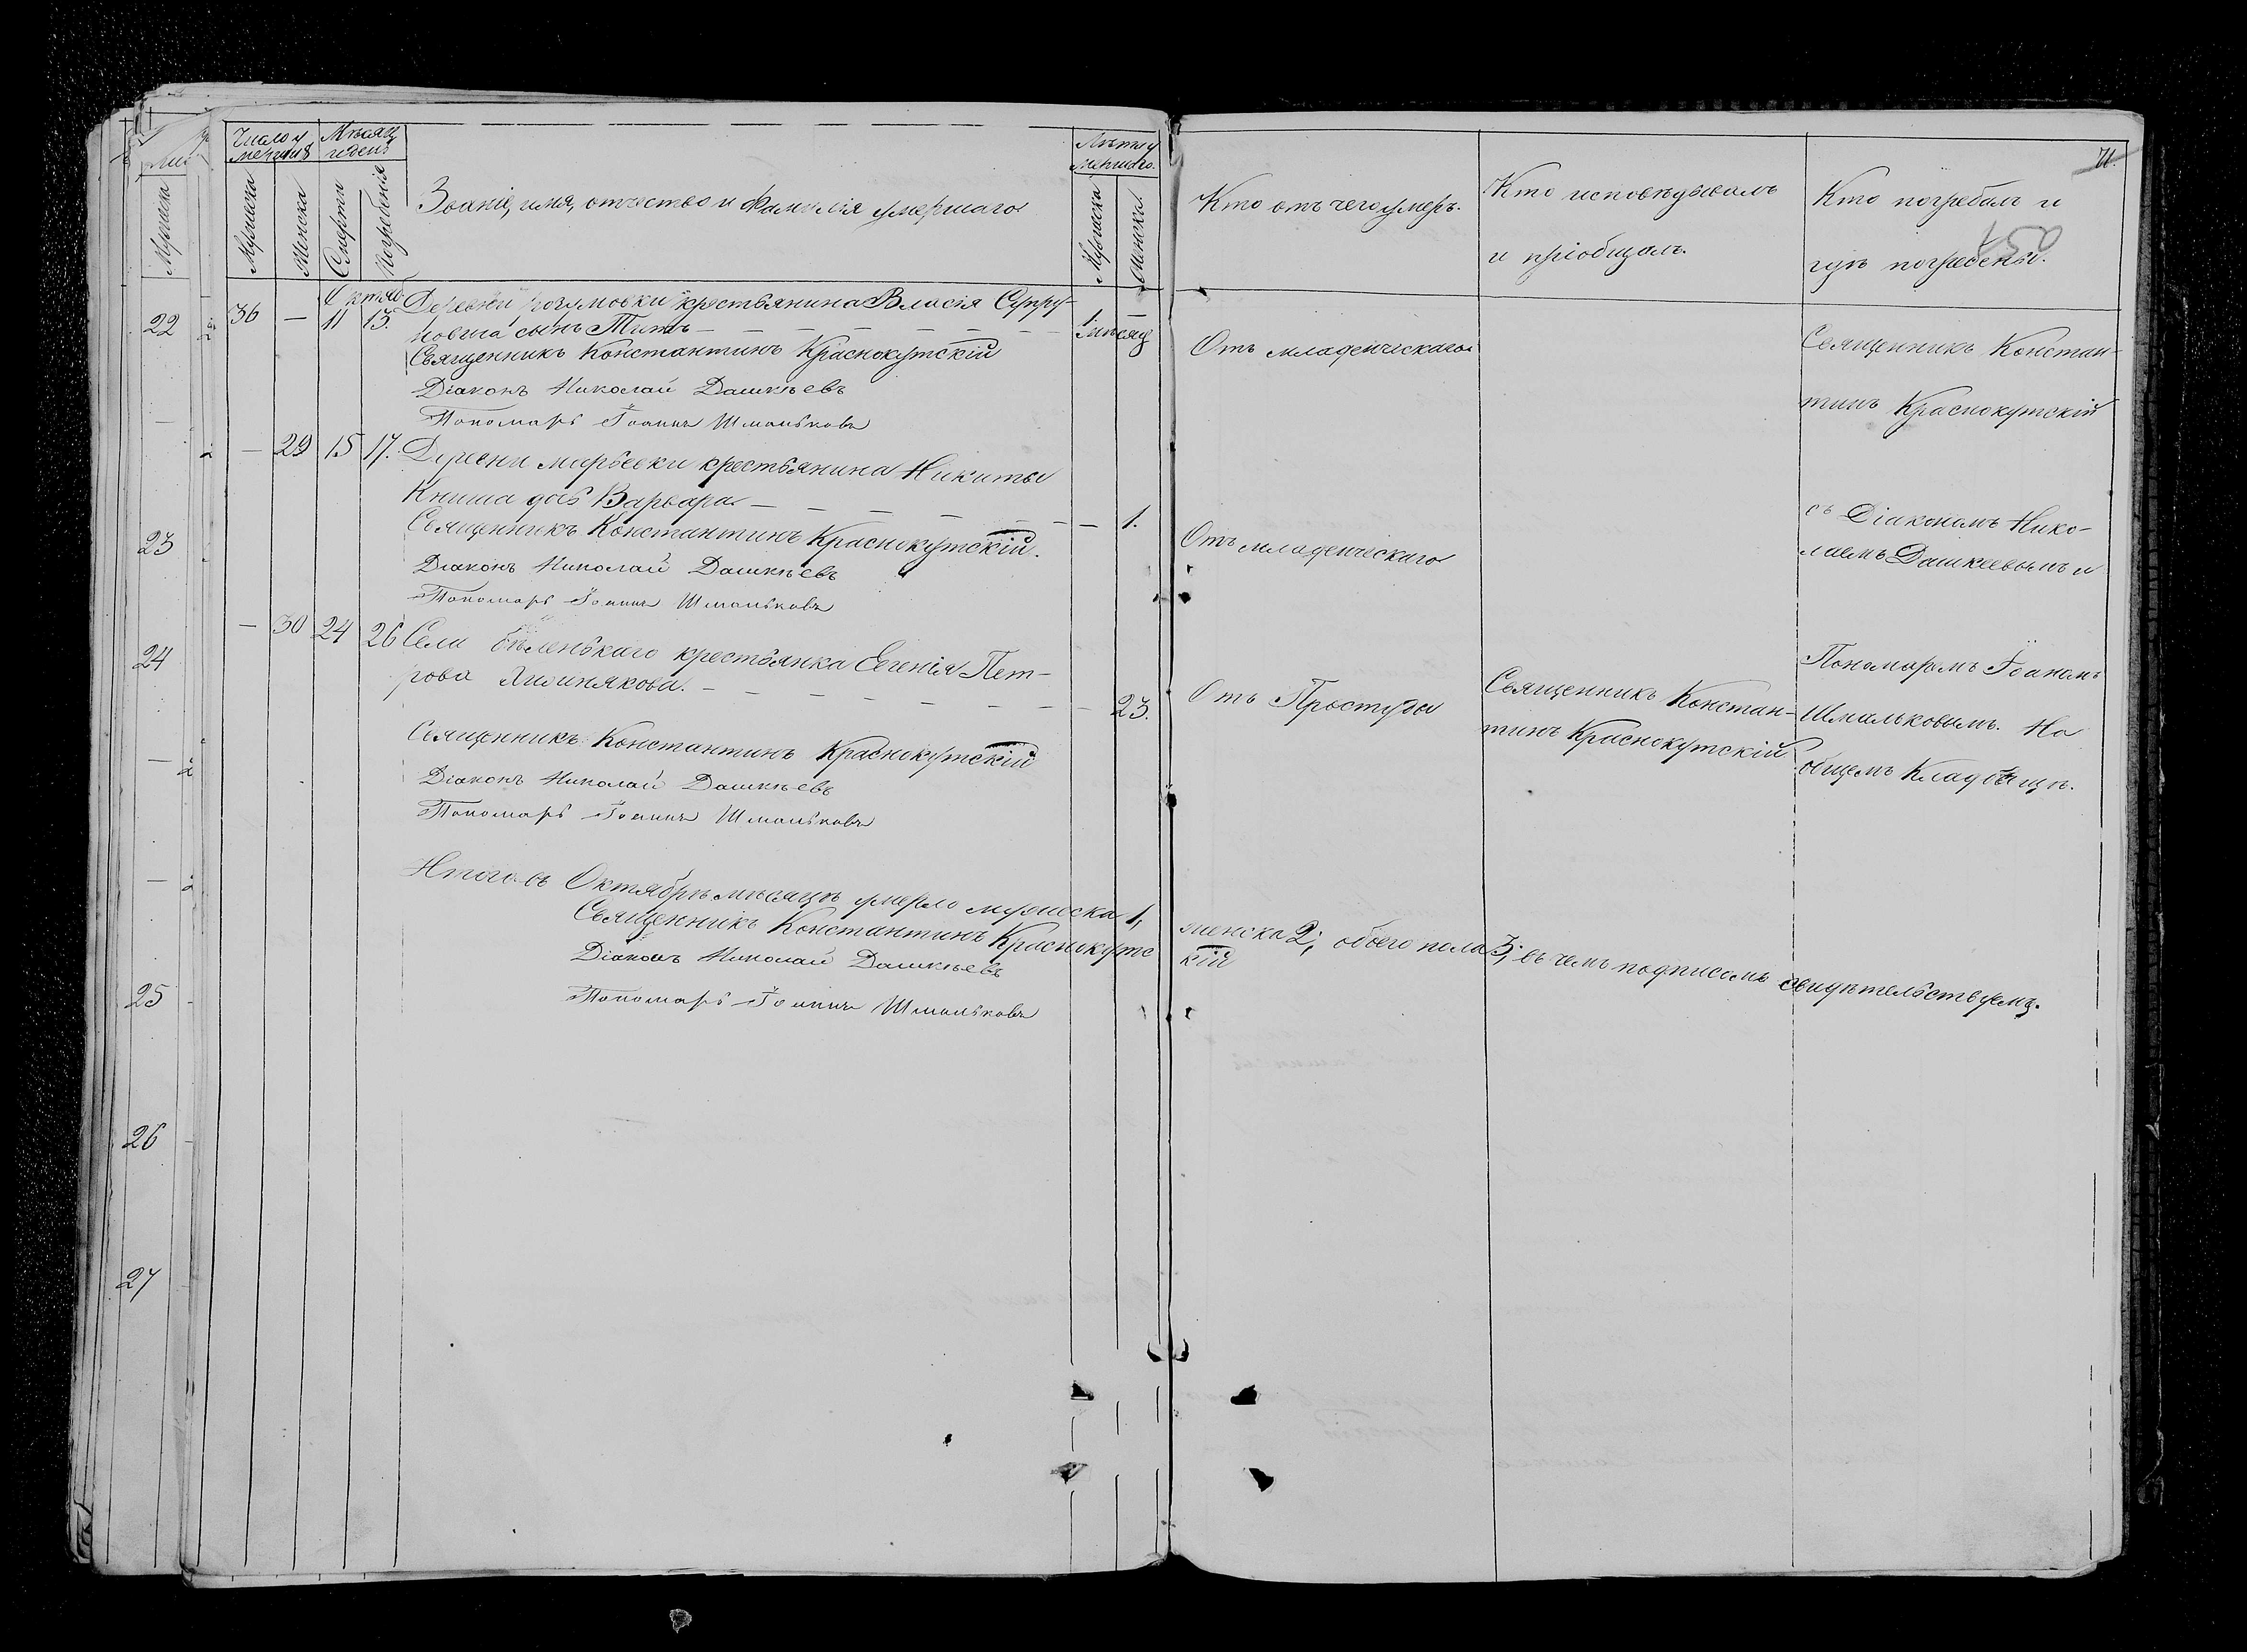 Число у
мершихъ
Мѣсяцъ
и день
Званіе, имя, отчество и фамилія умершаго
Лѣта у
мершаго.
Мужеска
Мужеска
Женска
Смерти
Погребенія
Мужеска
Женска
Кто отъ чего умеръ.
Кто исповѣдывалъ
и пріобщалъ.
Кто погребалъ и
гдѣ погребены.
71
Октяб
36 — 11 13. Деревни розумовки крестьянина Власія Супру-
новича сынъ Титъ — — — — — — 1 мѣсяц —
Священникъ Константинъ Краснокутскій
Діаконъ Николай Дашкѣевъ
Пономарь Іоаннъ Шмальковъ
Отъ младенческаго
Священникъ Констан-
тинъ Краснокутскій
— 29 15 17. Деревни марьевки крестьянина Никиты
Книша дочь Варвара — — — — — — — 1.
Священникъ Константинъ Краснокутскій.
Діаконъ Николай Дашкѣевъ
Пономарь Іоаннъ Шмальковъ
Отъ младенческаго
съ Діакономъ Нико-
лаемъ Дашкеевымъ и
— 30 24 26 Села бѣленькаго крестьянка Евгенія Пет-
рова — — — — — — — 23.
Священникъ Константинъ Краснокутскій
Діаконъ Николай Дашкѣевъ
Пономарь Іоаннъ Шмальковъ
Отъ Простуды
Священникъ Констан-
тинъ Краснокутскій
Пономаремъ Іоаномъ
Шмальковымъ. На
общемъ Кладбищѣ.
Итого въ Октябрѣ мѣсяцѣ умерло мужеска 1, женска 2, обоего пола 3; въ чемъ подписомъ свидѣтельствуемъ.
Священникъ Константинъ Краснокутскій
Діаконъ Николай Дашкѣевъ
Пономарь Іоаннъ Шмальковъ
22
23
24
25
26
27